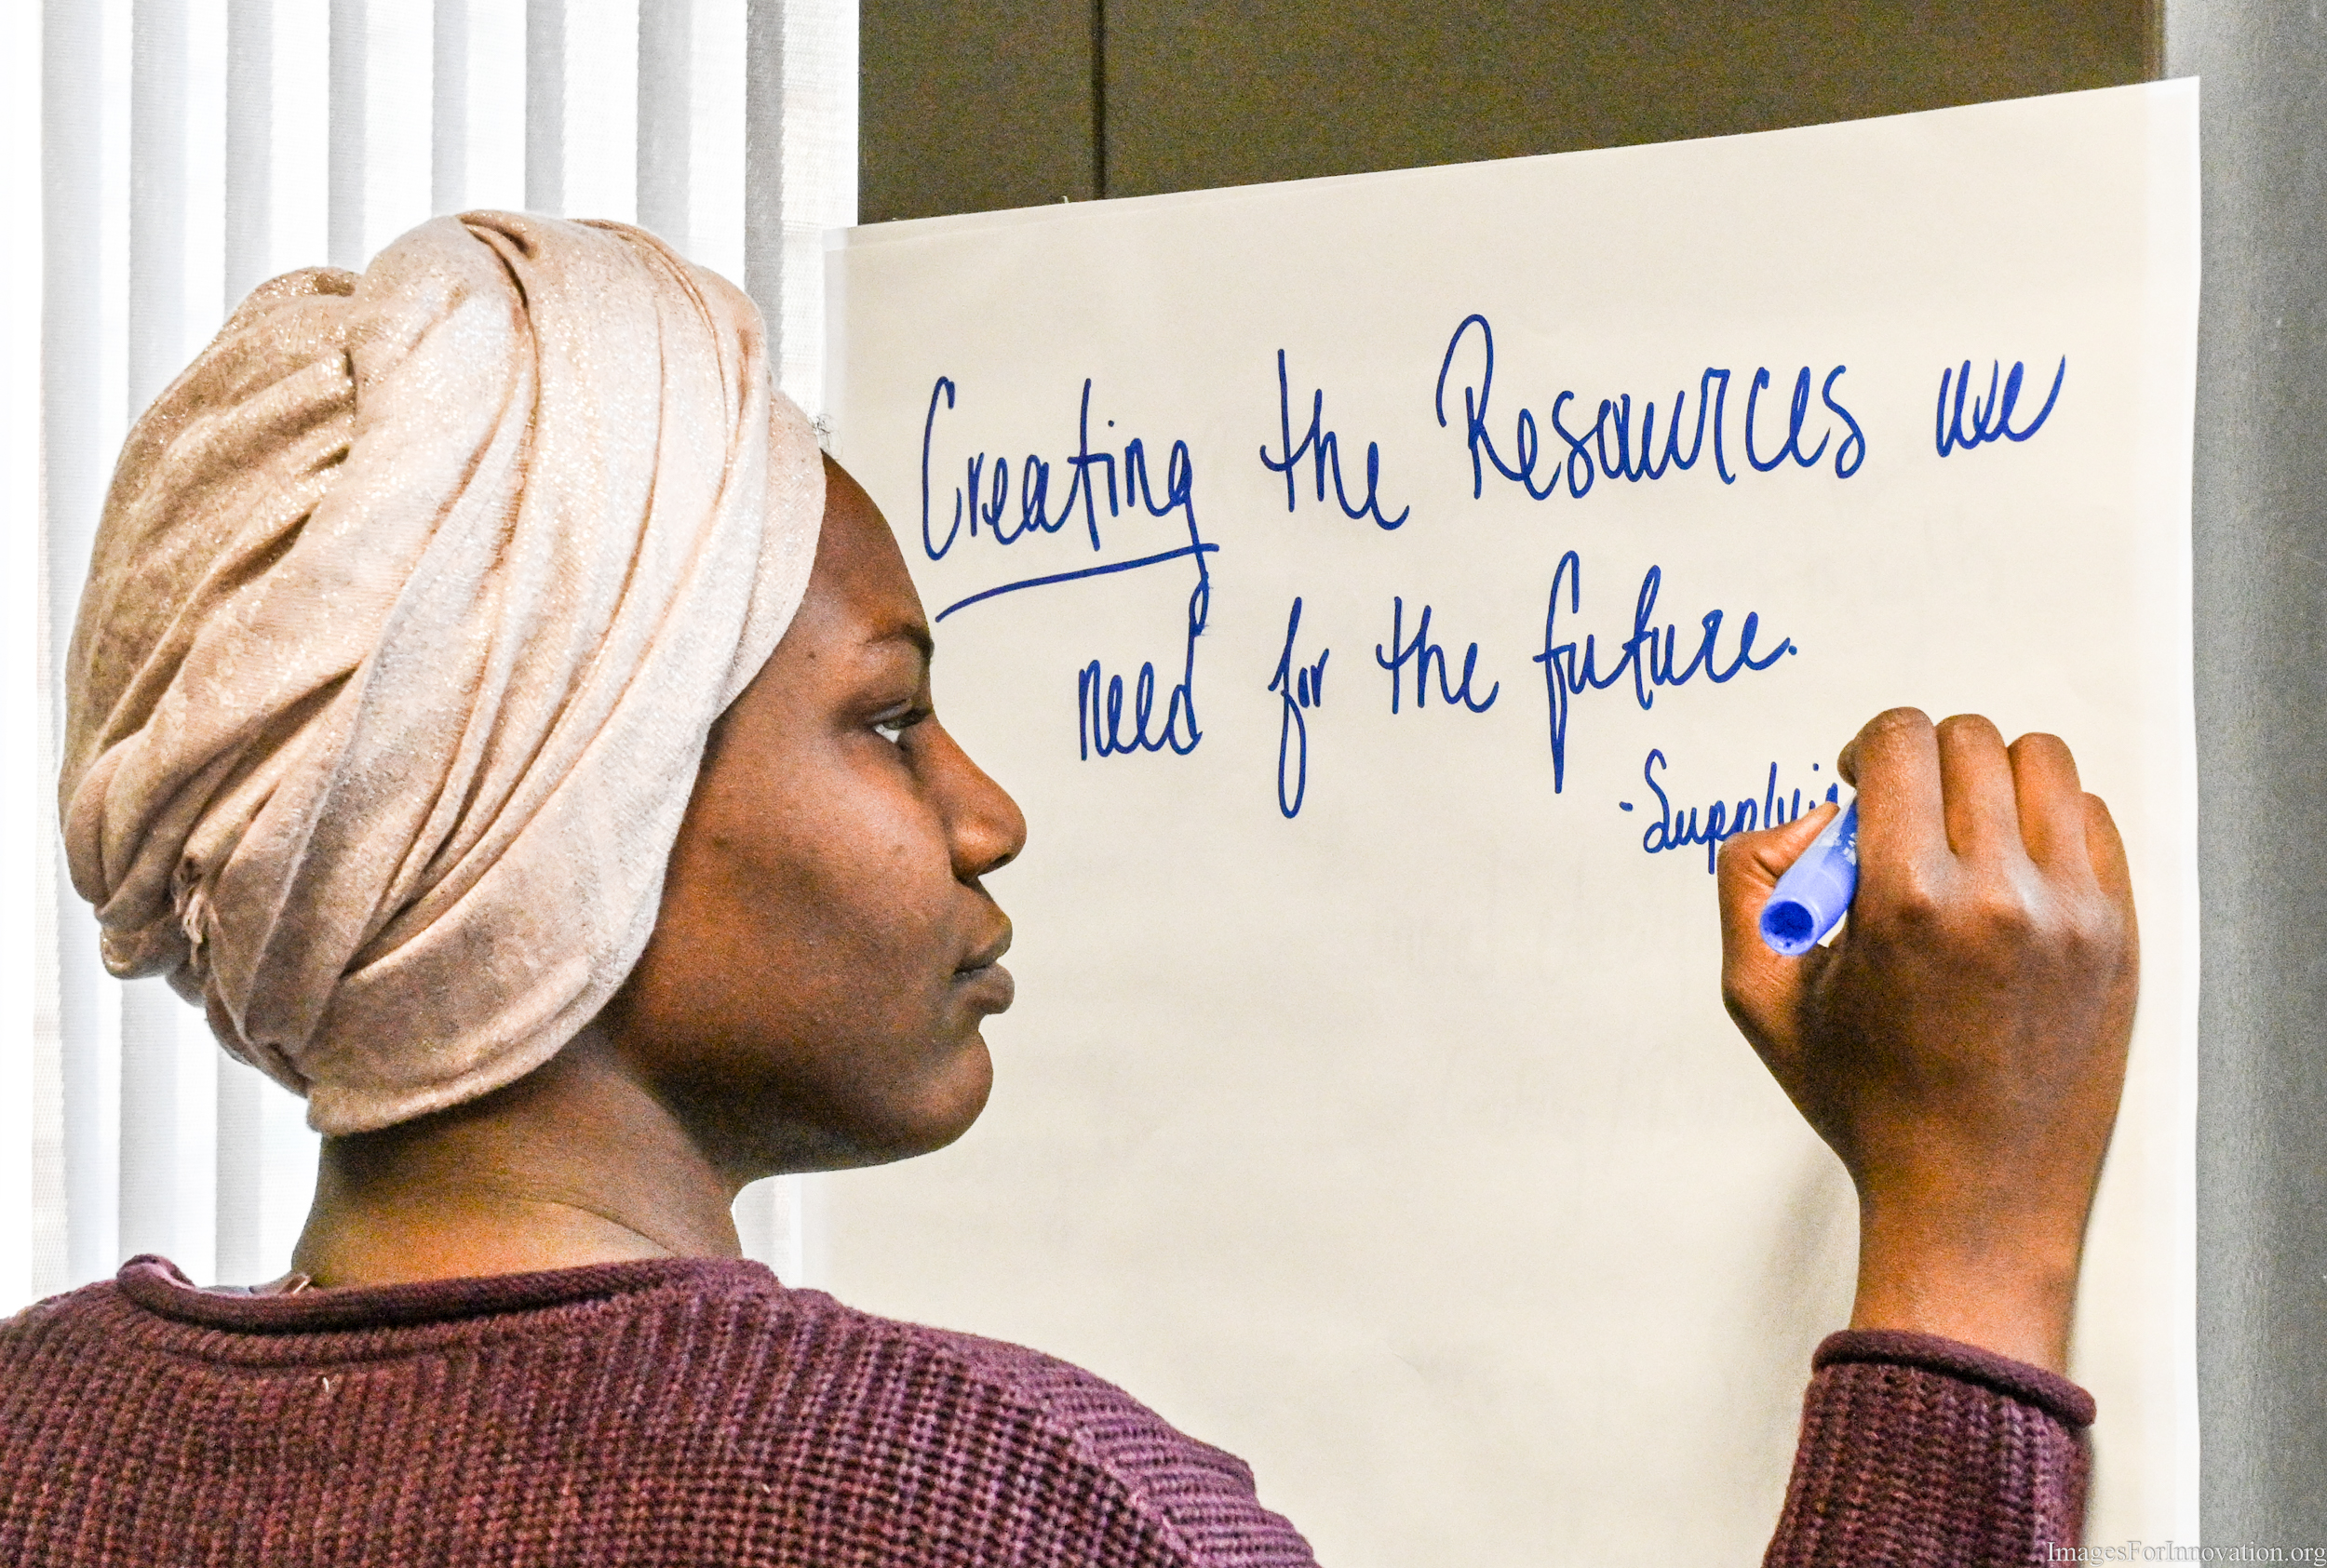 Creating the Resources we
need for the future.
ImagesForInnovation.org